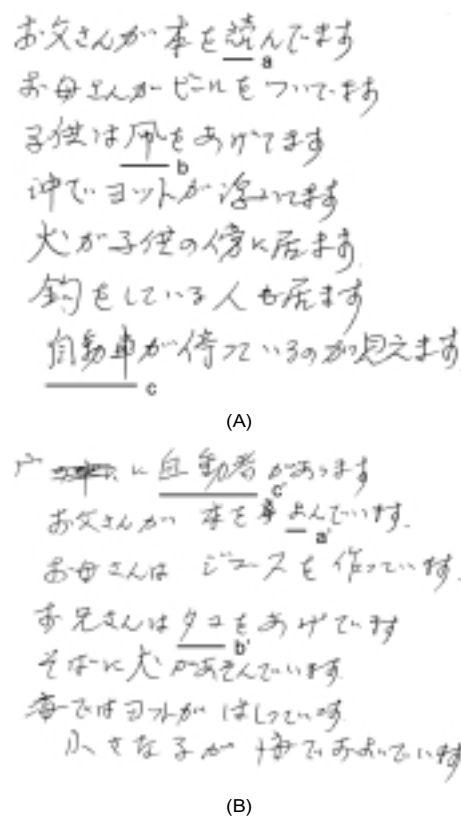 お父さんが本を読んでます
a
お母さんがビールをついでいます
子供は凧をあげてます
b
沖でヨットが浮いてます
犬が子供の傍に居ます
釣をしている人も居ます
自動車が停っているのが見えます
c
(A)
に自動者があります
c'
お父さんが 本を よんでいます.
a'
お母さんは ジュースを 作っています.
お兄さんはタコをあげています
b'
そばに犬があそんでいます
海ではヨットが はしっています
小さな子が 海でおよいでいます
(B)